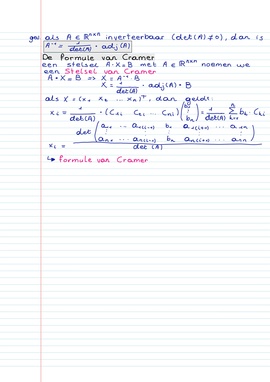 gev als A ∈ ℝⁿˣⁿ inverteerbaar (det(A) ≠ 0), dan is
A⁻¹ = 1/det(A) · adj(A)
De formule van Cramer
een stelsel A·X = B met A ∈ ℝⁿˣⁿ noemen we
een Stelsel van Cramer
A·X = B => X = A⁻¹·B
X = 1/det(A) · adj(A)·B
als X = (x₁ x₂ ... xₙ)ᵀ, dan geldt:
xᵢ = 1/det(A) · (C₁ᵢ C₂ᵢ ... Cₙᵢ) (b₁ ⋮ bₙ) = 1/det(A) ∑ₖ₌₁ⁿ bₖ·Cₖᵢ
xᵢ = det (a₁₁ ... a₁(i-1) b₁ a₁(i+1) ... a₁ₙ ⋮ aₙ₁ ... aₙ(i-1) bₙ aₙ(i+1) ... aₙₙ) / det(A)
↳ formule van Cramer